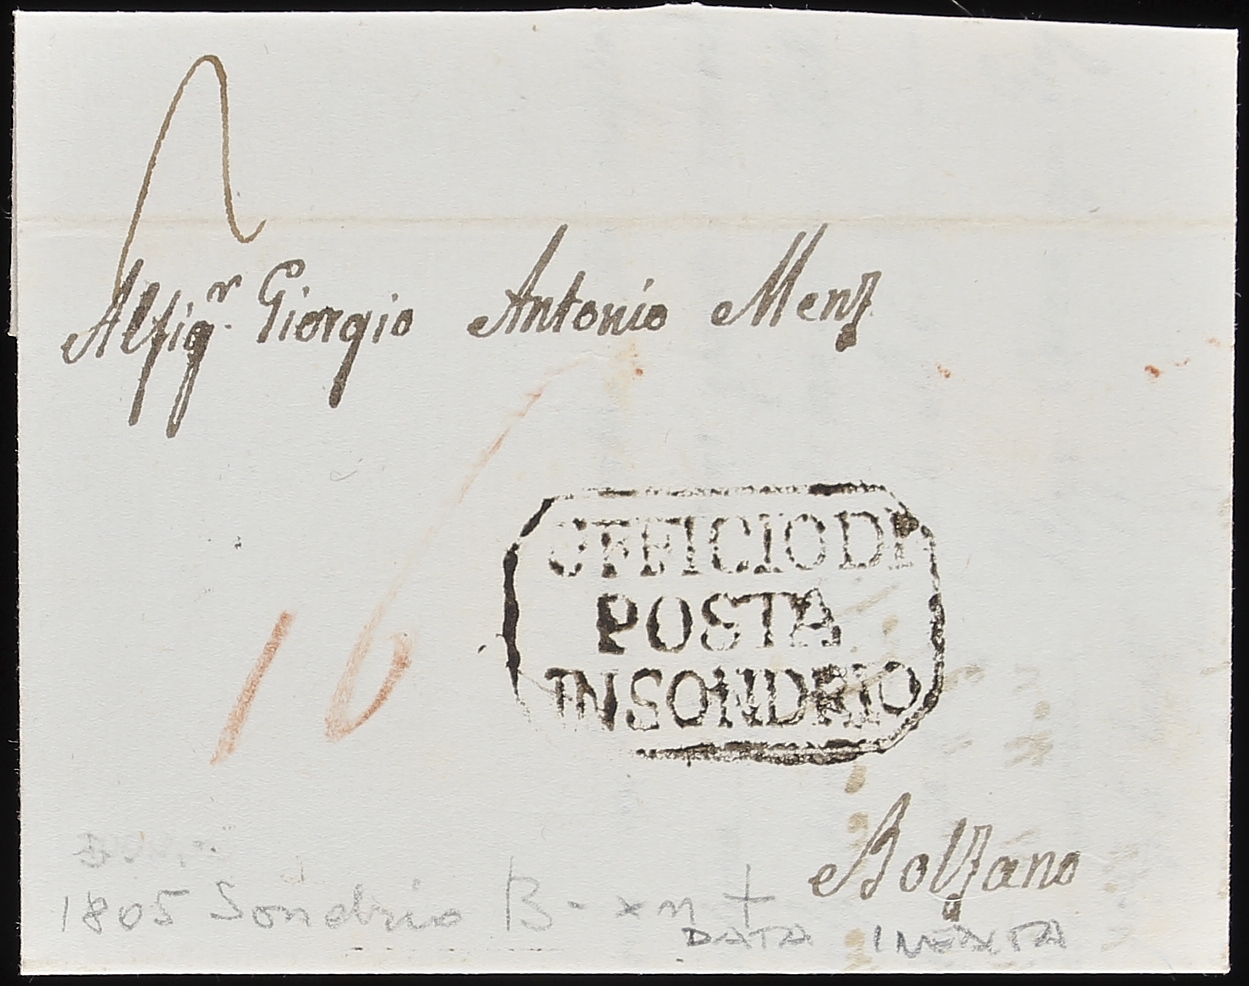 Al Sig.r Giorgio Antonio Menz
16
UFFICIO DI
POSTA
IN SONDRIO
Bolzano
1805 Sondrio B -
DATA